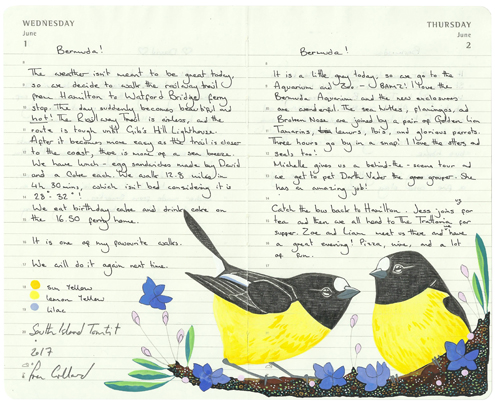 WEDNESDAY
June
1
Bermuda!
The weather isn't meant to be great today,
so we decide to walk the railway trail
from Hamilton to Watford Bridge ferry
stop. The day suddenly becomes beautiful and
hot! The Railway Trail is airless, and the
route is tough until Gibb's Hill Lighthouse.
After it becomes more easy as the trail is closer
to the coast, there is more of a sea breeze.
We have lunch - egg sandwiches made by David
and a Coke each. We walk 12.8 miles in
4h 30mins, which isn't bad considering it is
28° - 32°!
We eat birthday cake and drink coke on
the 16.30 ferry home.
It is one of my favourite walks.
We will do it again next time.
sun Yellow
lemon Yellow
lilac
South Island Tomtit
2017
THURSDAY
June
2
Bermuda!
It is a little grey today, so we go to the
Aquarium and Zoo - BAMZ! I love the
Bermuda Aquarium and the new enclosures
are wonderful. The sea turtles, flamingos, and
Broken Nose are joined by a pair of Golden Lion
Tamarins, lemurs, Ibis, and glorious parrots.
Three hours go by in a snap! I love the otters and
seals too!
Michelle gives us a behind-the-scene tour and
we get to pet Darth Vader the grouper. She
has an amazing job!
Catch the bus back to Hamilton. Jess joins for
tea and then we all head to The Trattoria for
supper. Zoe and Liam meet us there and have
a great evening! Pizza, wine, and a lot
of fun.